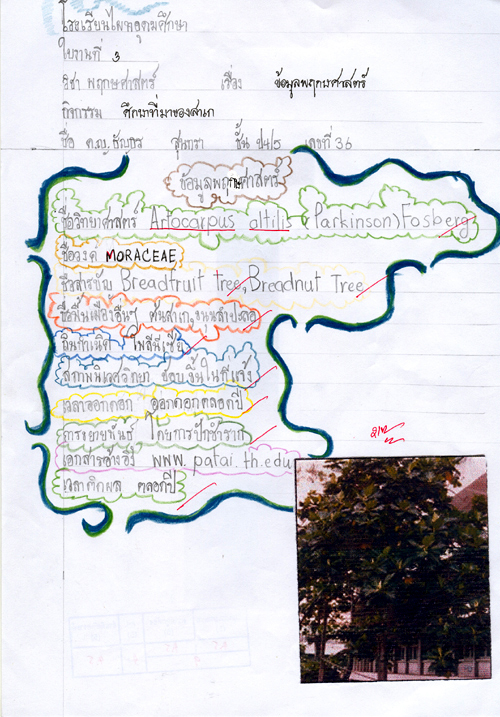 โรงเรียนไผทอุดมศึกษา
ใบงานที่ 3
วิชา พฤกษศาสตร์ เรื่อง ข้อมูลพฤกษศาสตร์
กิจกรรม ศึกษาที่มาของสาเก
ชื่อ ด.ญ. ชั้น ป.4/5 เลขที่ 36
ข้อมูลพฤกษศาสตร์
ชื่อวิทยาศาสตร์ Artocarpus altilis (Parkinson) Fosberg
ชื่อวงศ์ MORACEAE
ชื่อสามัญ Breadfruit tree, Breadnut Tree
ชื่อพื้นเมืองอื่นๆ ต้นสาเก, ขนุนสำปะลอ
ถิ่นกำเนิด โพลีนีเซีย
สภาพนิเวศวิทยา ชอบขึ้นในที่แจ้ง
เวลาออกดอก ออกดอกตลอดปี
การขยายพันธุ์ โดยการปักชำราก
เอกสารอ้างอิง www.patai.th.edu
เวลาติดผล ตลอดปี